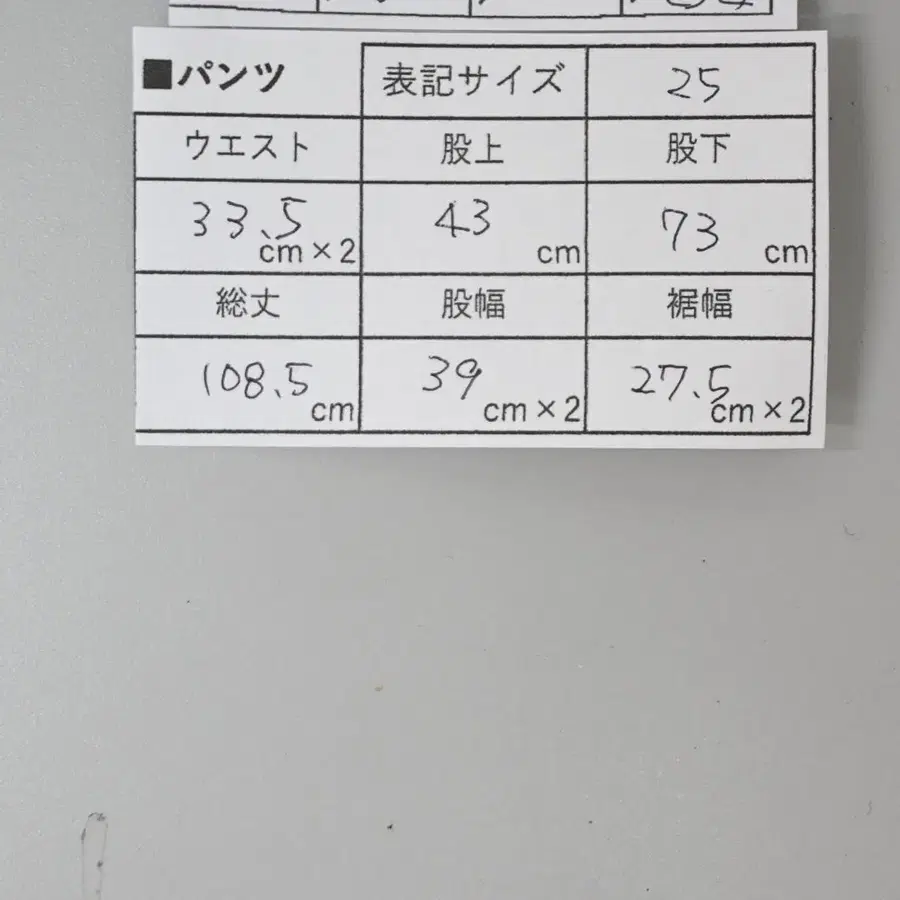 ■パンツ 表記サイズ 25
ウエスト 股上 股下
33.5 cm×2 43 cm 73 cm
総丈 股幅 裾幅
108.5 cm 39 cm×2 27.5 cm×2